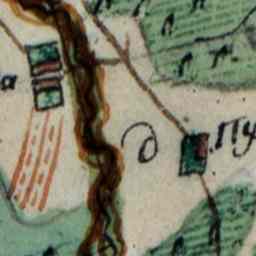 а
д Пу